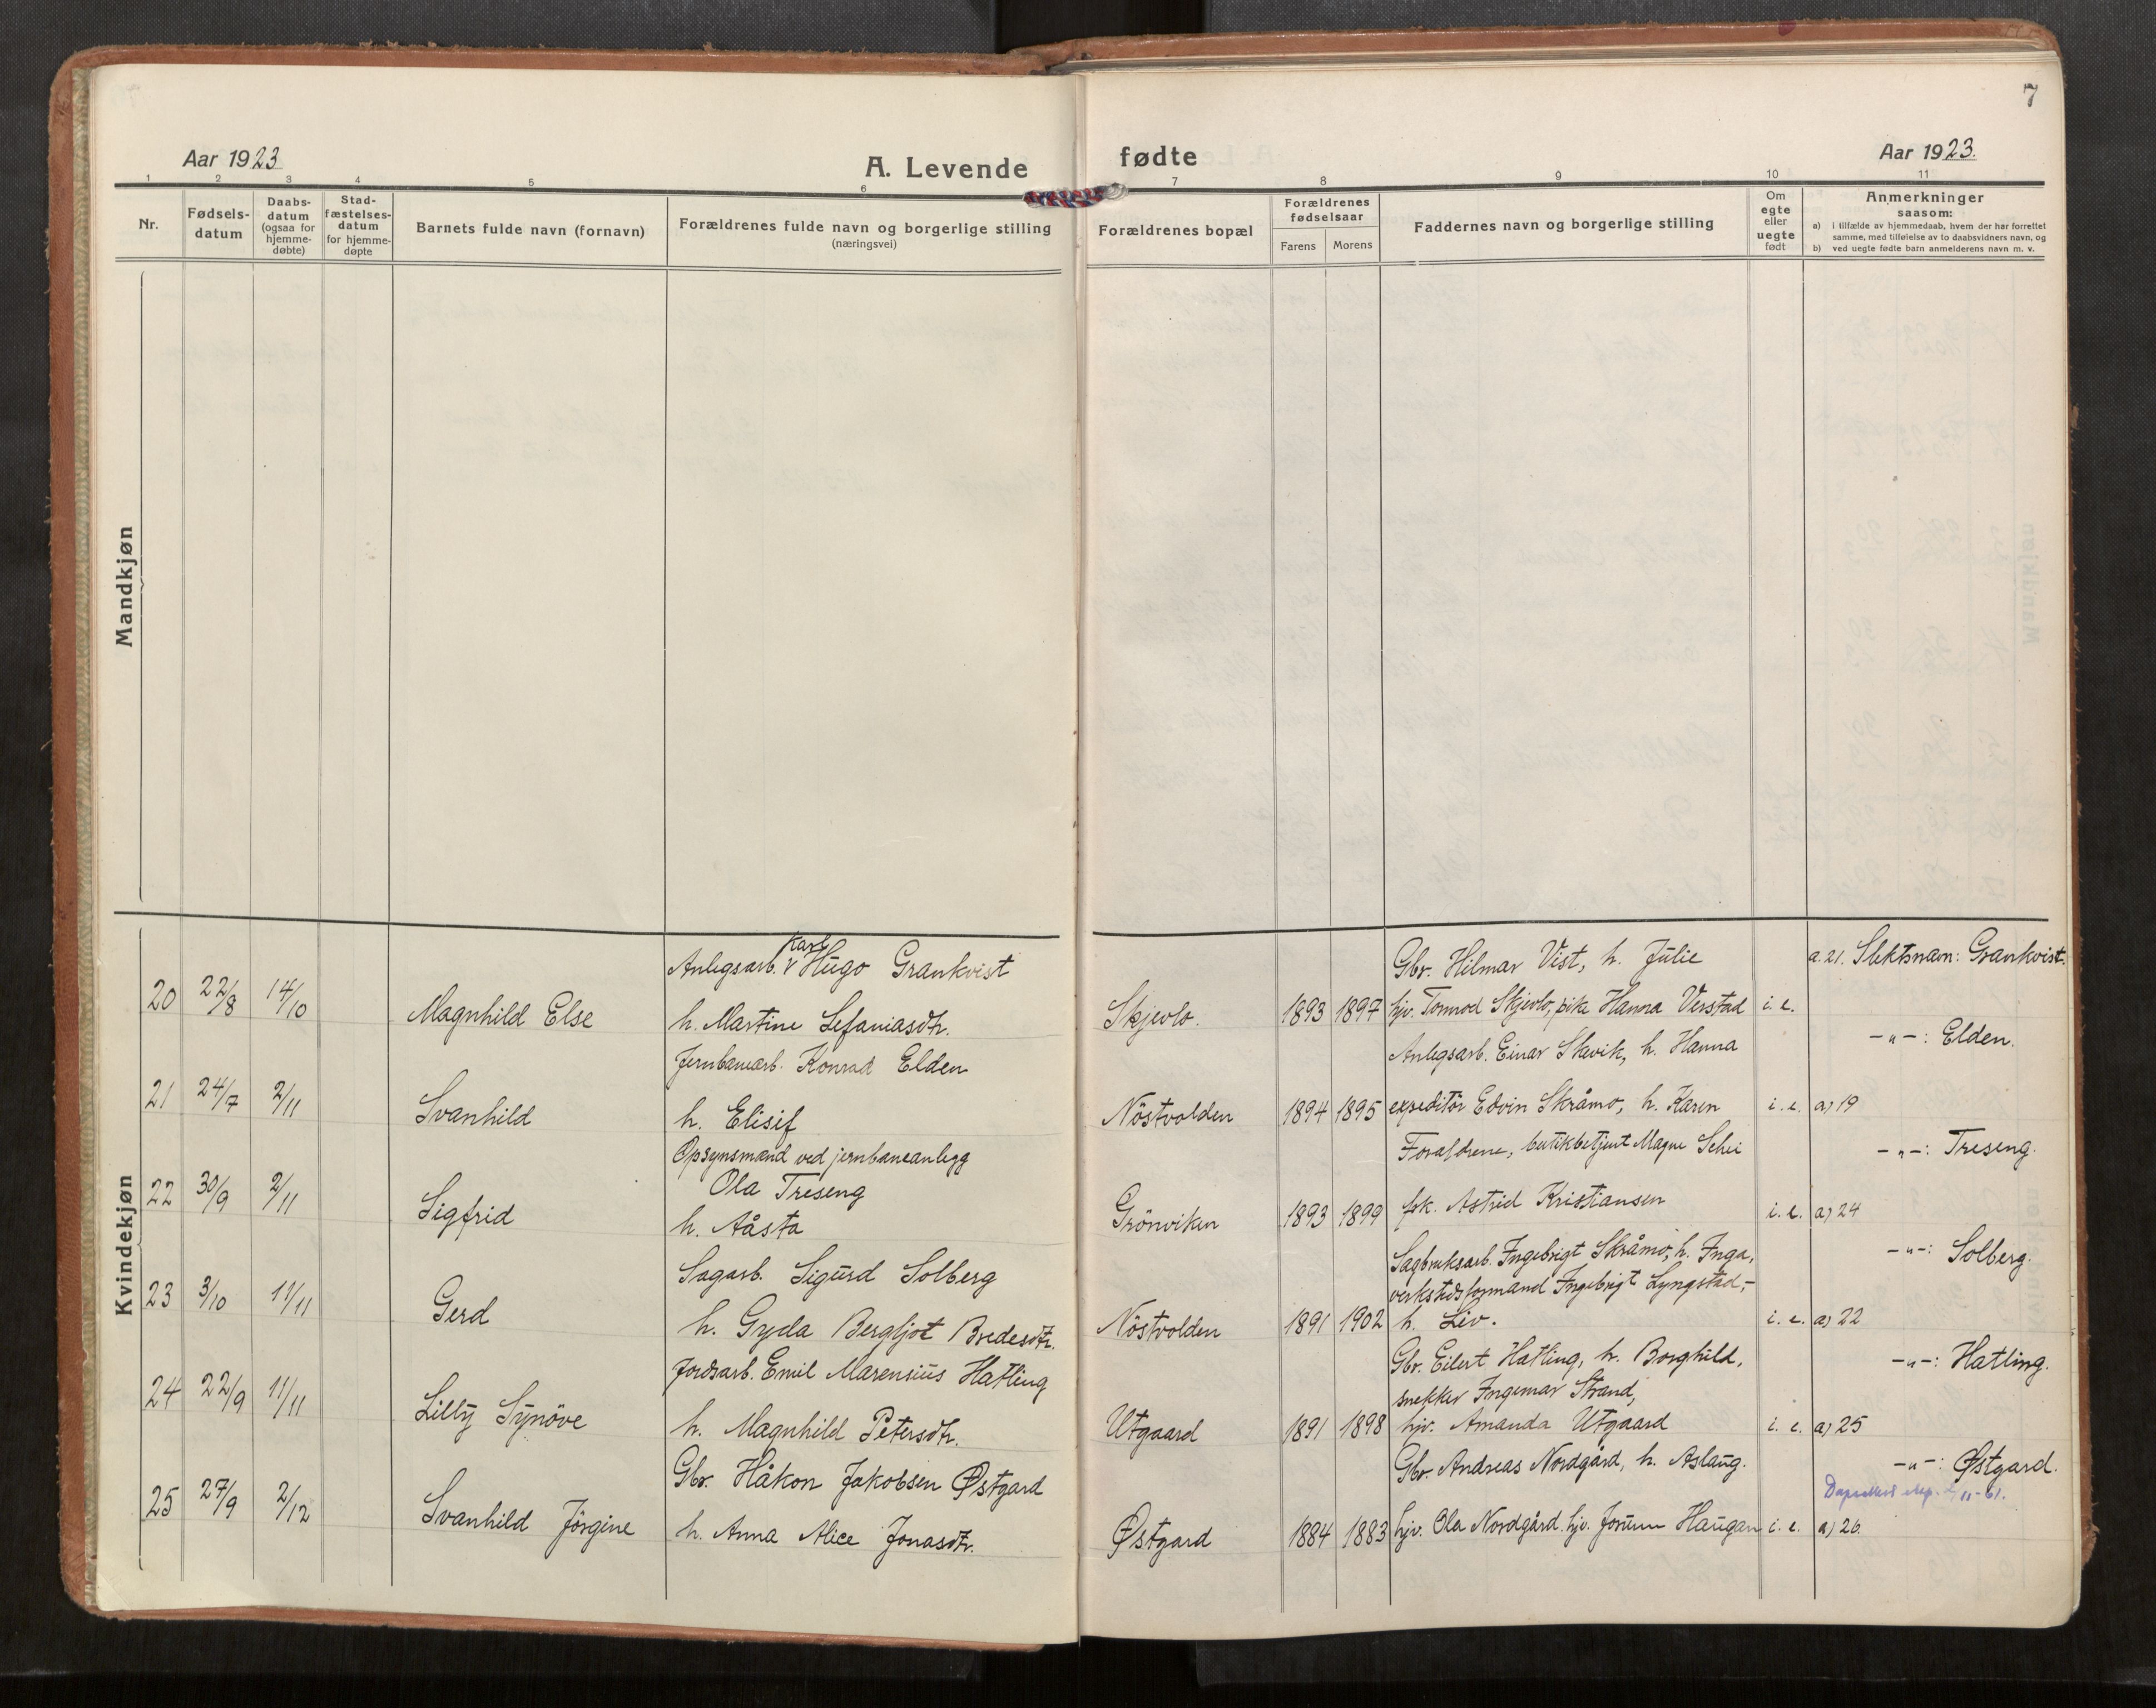 7
Aar 1923
A. Levende
fødte
Aar 1923.
1 2 3 4 5 6 7 8 9 10 11
Nr.
Fødsels-
datum
Daabs-
datum
(ogsaa for
hjemme-
døbte)
Stad-
fæstelses-
datum
for hjemme-
døpte
Barnets fulde navn (fornavn)
Forældrenes fulde navn og borgerlige stilling
(næringsvei)
Forældrenes bopæl
Forældrenes
fødselsaar
Farens Morens
Faddernes navn og borgerlige stilling
Om
egte
eller
uegte
født
Anmerkninger
saasom:
a) i tilfælde av hjemmedaab, hvem der har forrettet
samme, med tilføielse av to daabsvidners navn, og
b) ved uegte fødte barn anmelderens navn m. v.
Mandkjøn
Kvindekjøn
Karl
Anlegsarb. v Hugo Grankvist
Gbr. Hilmar Vist, h. Julie
a. 21. Slektsnavn: Grankvist.
20 22/8 14/10 Magnhild Else h. Martine Sefaniasdtr. Skjevlo. 1893 1897 hjv. Tormod Skjevlo, pike Hanna Verstad i. e.
Jernbanearb. Konrad Elden
Anlegsarb. Einar Skavik, h. Hanna
-"-: Elden.
21 24/7 2/11 Svanhild h. Elisif Nöstvolden 1894 1895 expeditör Edvin Skråmo, h. Karen i. e. a) 19
Opsynsmand ved jernbaneanlegg
Foraldrene, butikbetjent Magne Schei
-"-: Treseng.
Ola Treseng
22 30/9 2/11 Sigfrid h. Aåsta Grönviken 1893 1899 frk. Astrid Kristiansen i. e. a) 24
Sagarb. Sigurd Solberg
Sagbruksarb. Ingebrigt Skråmo, h. Inga,
-"-: Solberg.
verkstedsformand Ingebrigt Lyngstad,-
23 3/10 11/11 Gerd h. Gyda Bergljot Bredesdtr. Nöstvolden 1891 1902 h. Liv. i. e. a) 22
Jordsarb. Emil Marensius Hatling
Gbr. Eilert Hatling, h. Borghild,
-"-: Hatling.
snekker Ingemar Strand,
24 22/9 11/11 Lilly Synöve h. Magnhild Petersdtr. Utgaard 1891 1898 hjv. Amanda Utgaard i. e. a) 25
Gbr. Håkon Jakobsen Østgard
Gbr. Andreas Nordgård, h. Aslaug.
-"-: Østgard.
11-61.
25 27/9 2/12 Svanhild Jörgine h. Anna Alice Jonasdtr. Østgard 1884 1883 hjv. Ola Nordgård. hjv. Jorunn Haugan i. e. a) 26.